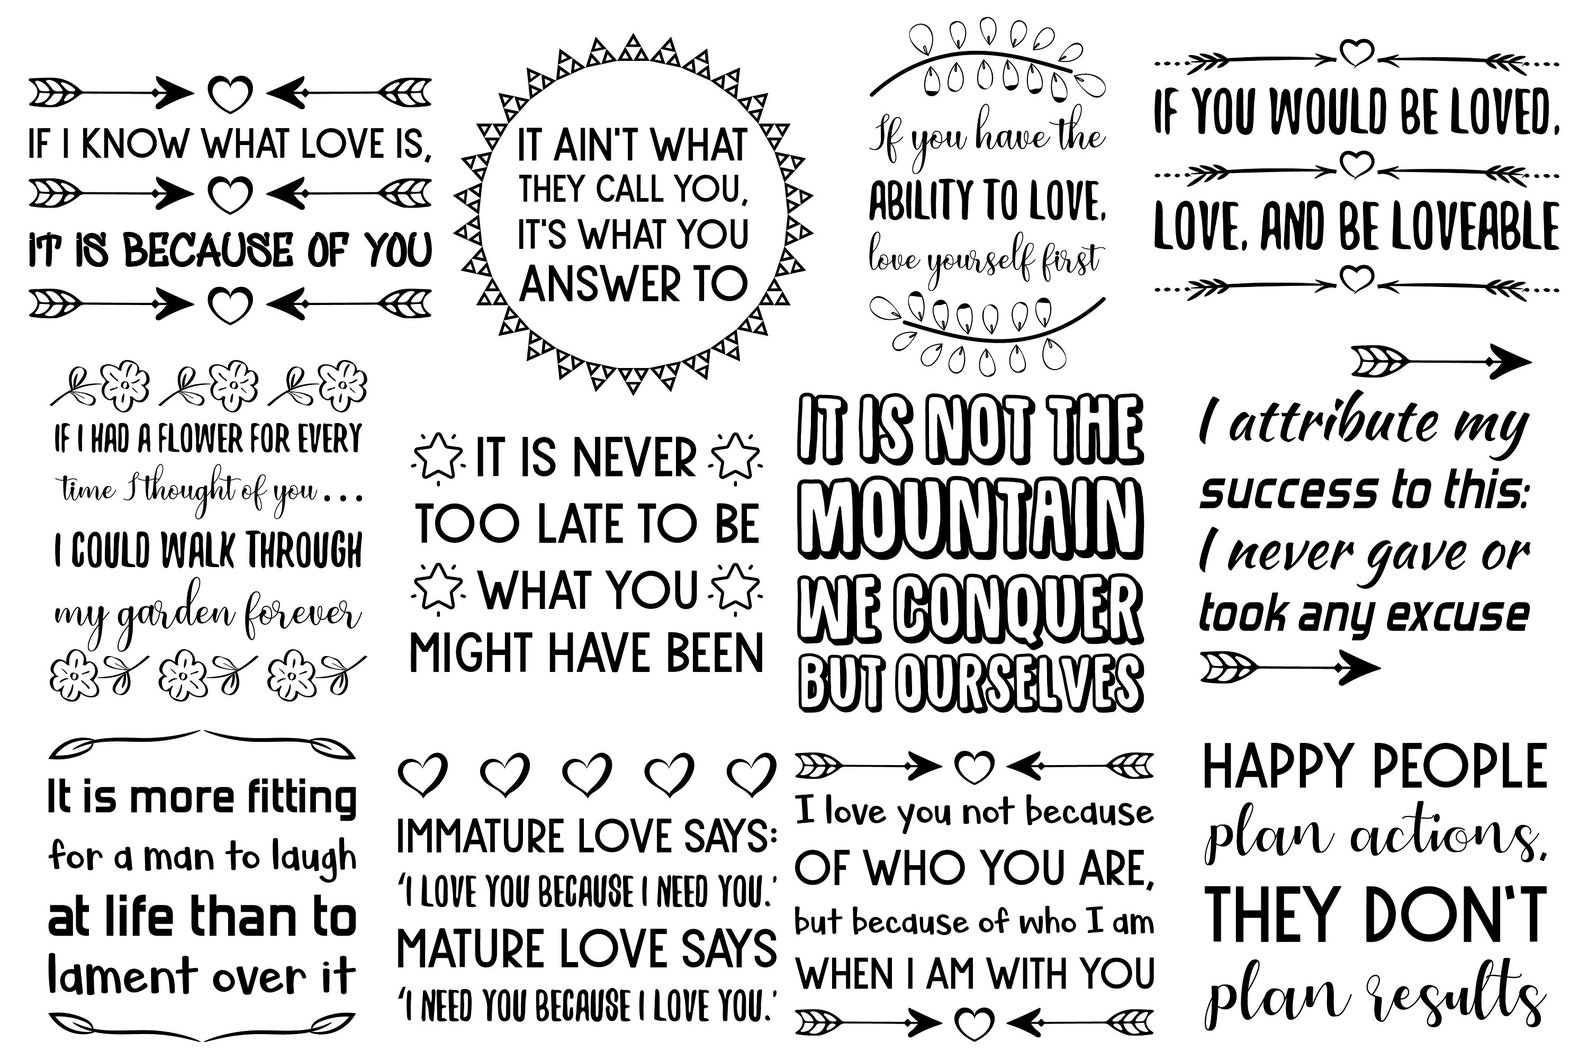 IF I KNOW WHAT LOVE IS,
IT IS BECAUSE OF YOU
IT AIN'T WHAT
THEY CALL YOU,
IT'S WHAT YOU
ANSWER TO
If you have the
ABILITY TO LOVE,
love yourself first
IF YOU WOULD BE LOVED,
LOVE, AND BE LOVEABLE
IF I HAD A FLOWER FOR EVERY
time I thought of you...
I COULD WALK THROUGH
my garden forever
IT IS NEVER
TOO LATE TO BE
WHAT YOU
MIGHT HAVE BEEN
IT IS NOT THE
MOUNTAIN
WE CONQUER
BUT OURSELVES
I attribute my
success to this:
I never gave or
took any excuse
It is more fitting
for a man to laugh
at life than to
lament over it
IMMATURE LOVE SAYS:
'I LOVE YOU BECAUSE I NEED YOU.'
MATURE LOVE SAYS
'I NEED YOU BECAUSE I LOVE YOU.'
I love you not because
OF WHO YOU ARE,
but because of who I am
WHEN I AM WITH YOU
HAPPY PEOPLE
plan actions,
THEY DON'T
plan results